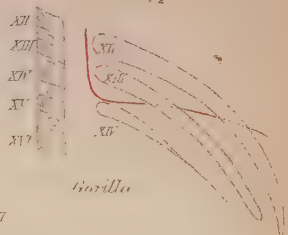 XII
XIII
XIV
XV
XVI
XII
XIII
XIV
Gorilla